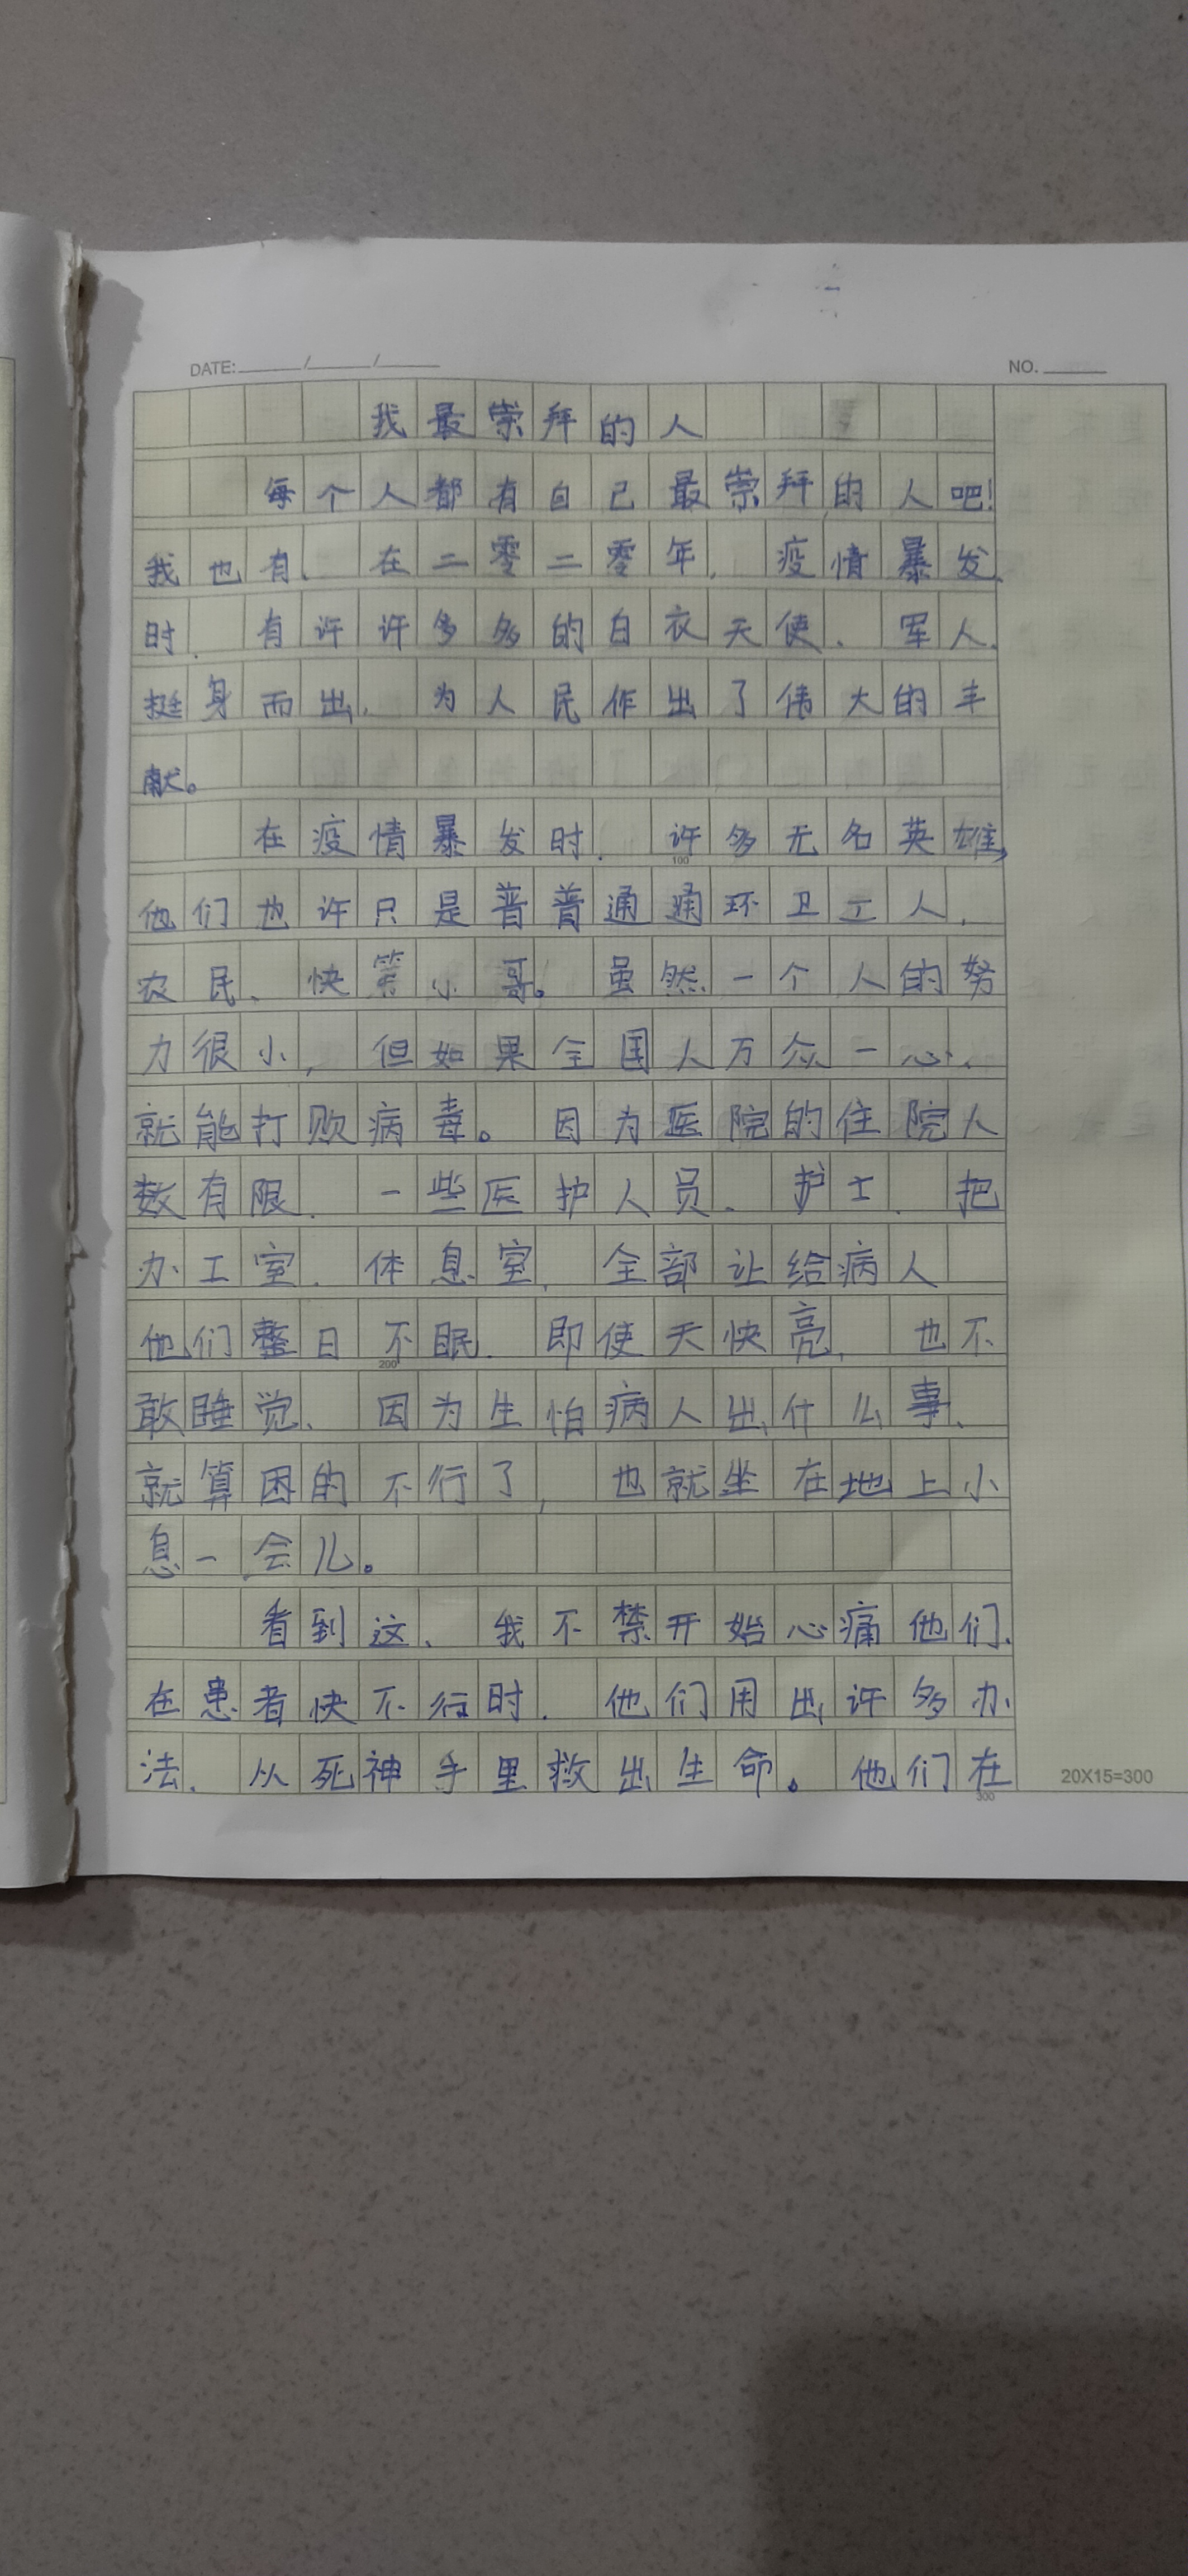 DATE: / /
NO.
我最崇拜的人
每个人都有自己最崇拜的人吧!
我也有、在二零二零年,疫情暴发、
时,有许许多多的白衣天使、军人、
挺身而出,为人民作出了伟大的丰
献。
在疫情暴发时,许多无名英雄,
100
他们也许只是普普通通环卫工人,
农民、快第小哥。虽然一个人的努
力很小,但如果全国人万众一心、
就能打败病毒。因为医院的住院人
数有限,一些医护人员、护士、把
办工室、体息室,全部让给病人
他们整日不眠、即使天快亮,也不
200
敢睡觉、因为生怕病人出什么事、
就算困的不行了,也就坐在地上小
息一会儿。
看到这、我不禁开始心痛他们.
在患者快不行时.他们用出许多办
法、从死神手里救出生命。他们在
20X15=300
300